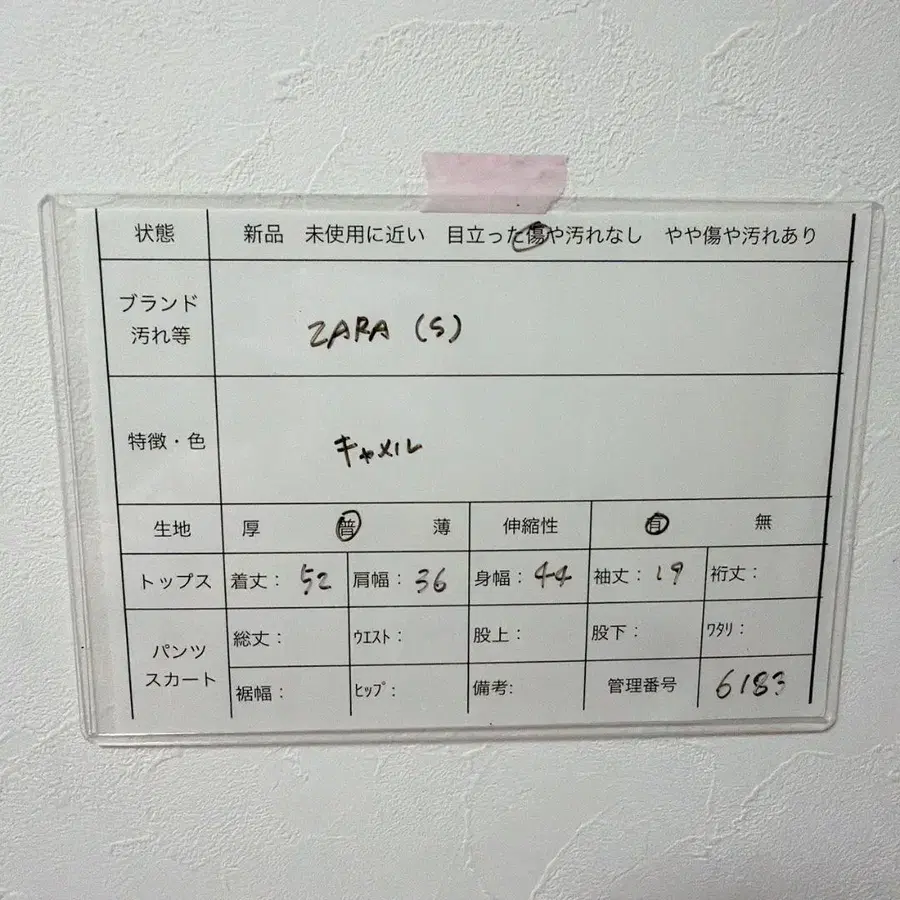 状態 新品 未使用に近い 目立った傷や汚れなし やや傷や汚れあり
ブランド
汚れ等
ZARA (S)
特徴・色 キャメル
生地 厚 普 薄 伸縮性 有 無
トップス 着丈: 52 肩幅: 36 身幅: 44 袖丈: 19 裄丈:
パンツ
スカート
総丈: ウエスト: 股上: 股下: ワタリ:
裾幅: ヒップ: 備考: 管理番号 6183